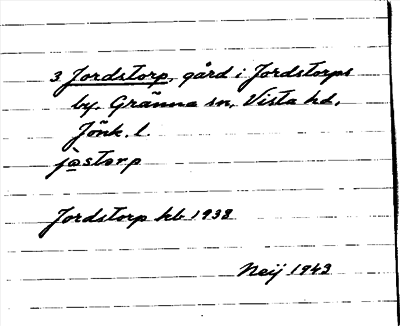 3 Jordstorp, gård i Jordstorps
by, Gränna sn, Vista hd,
Jönk. l.
jostorp
Jordstorp kb 1938
Neij 1943